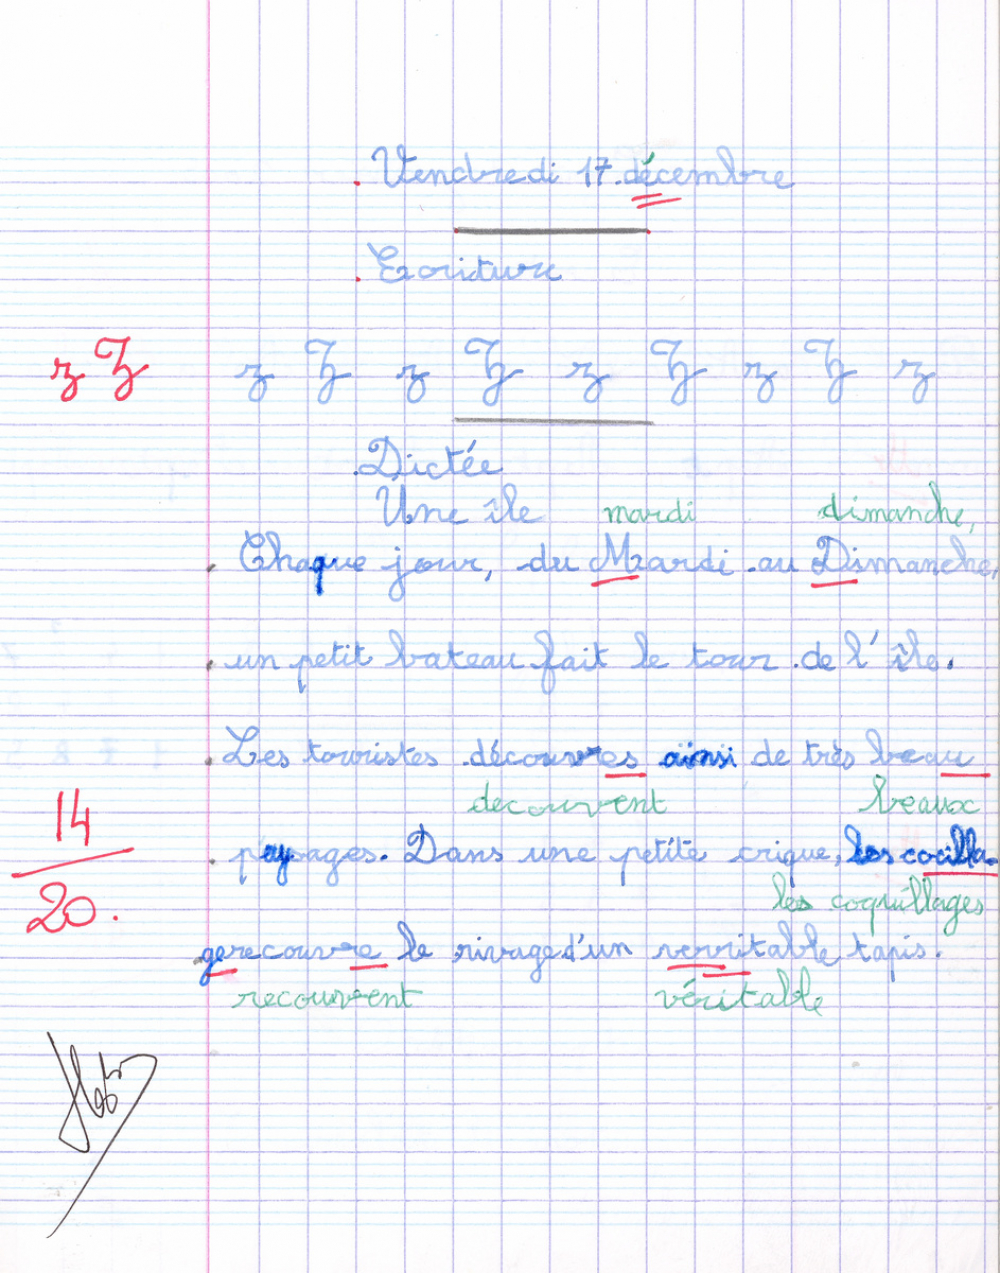 Vendredi 17 décembre
Ecriture
z Z z Z z Z z Z z Z z
Dictée
Une île mardi dimanche,
Chaque jour, du Mardi au Dimanche,
un petit bateau fait le tour de l'île.
Les touristes découvres ainsi de très beau
decouvrent beaux
14
paysages. Dans une petite crique, les cocilla
20.
les coquillages
ge recouvre le rivage d'un verritable tapis.
recouvrent véritable